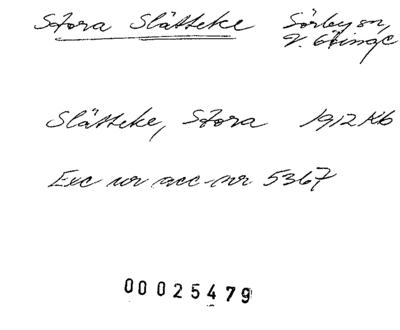 Stora Slätteke Sörbyn,
V. Göinge
Slätteke, Stora 1912 Kb
Exc ur acc-nr 5367
00025479